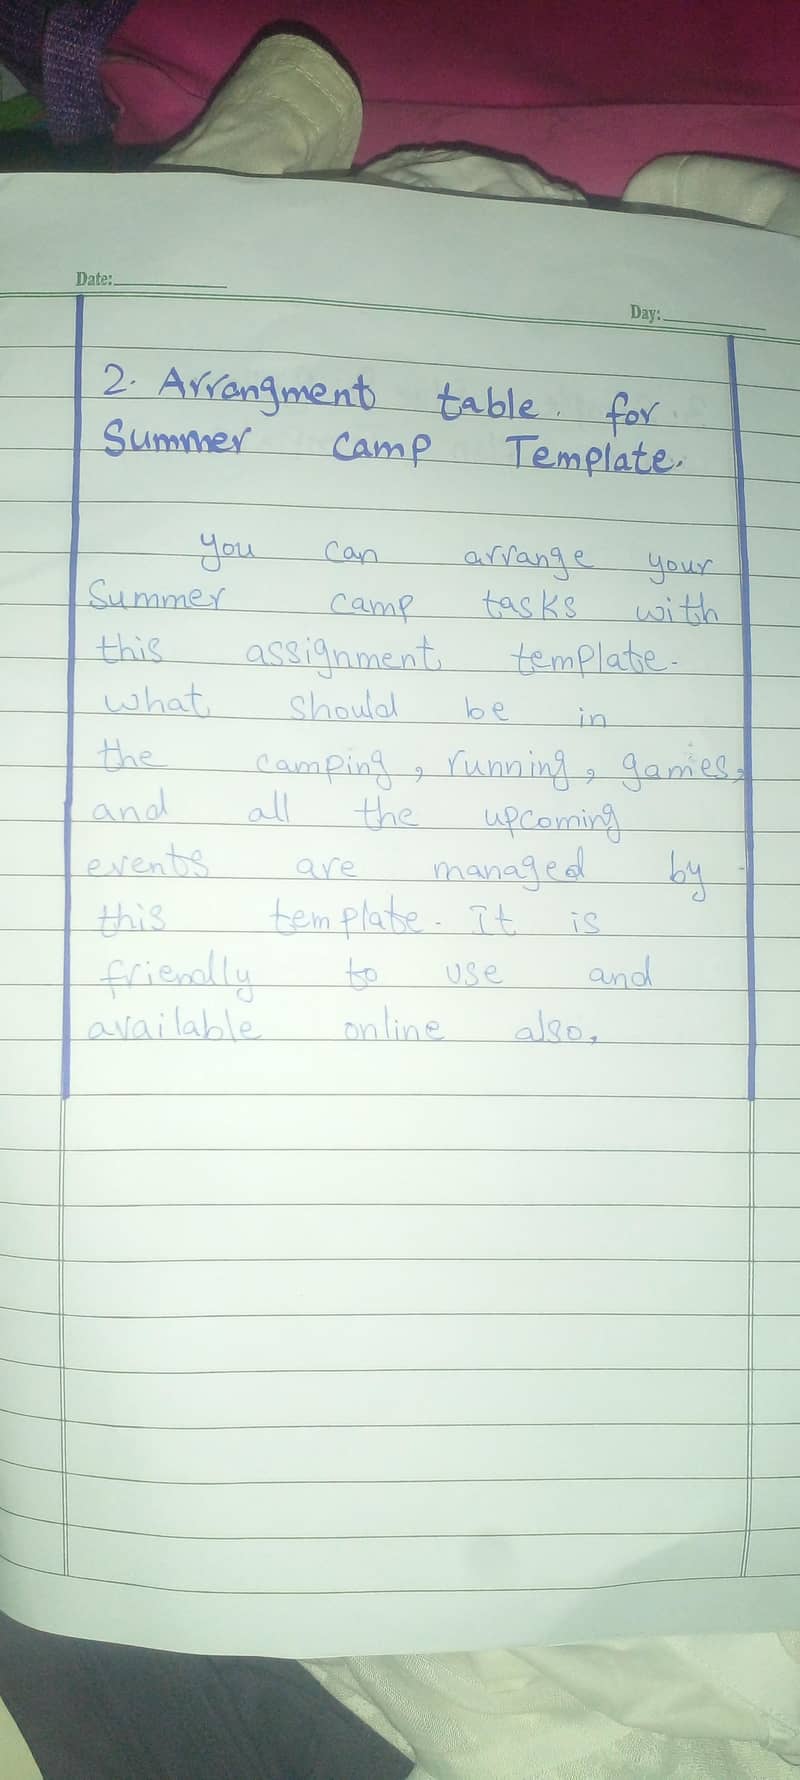 Date:
Day:
2. Arrangment table. for
Summer camp Template.
you can arrange your
Summer camp tasks with
this assignment template.
what should be in
the camping, running, games,
and all the upcoming
events are managed by
this template. It is
friendly to use and
available online also.